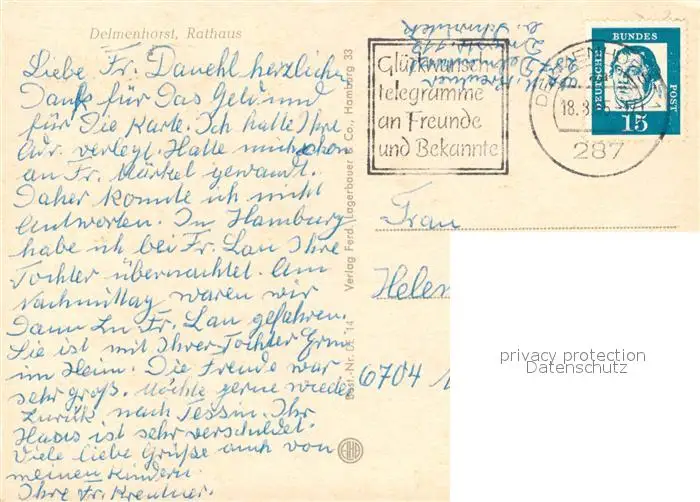 Delmenhorst, Rathaus
Liebe Fr. Dauehl herzlichen
Dank für Das Geld und
für Die Karte. Ich hatte Ihre
Adr. verlegt. Hatte mich schon
an Fr. Märkel gewandt.
Daher konnte ich nicht
antworten. In Hamburg
habe ich bei Fr. Lau Ihre
Tochter übernachtet. Am
Nachmittag waren wir
Dann zu Fr. Lau gefahren.
Sie ist mit Ihrer Tochter Erna
im Heim. Die Freude war
sehr groß. Möchte gerne wieder
zurück nach Tessin. Ihr
Haus ist sehr verschuldet.
Viele liebe Grüße auch von
meinen Kindern.
Ihre Fr. Kreutner.
Verlag Ferd. Lagerbauer & Co., Hamburg 33
Best.-Nr. De. 14
Glückwunsch-
telegramme
an Freunde
und Bekannte
DELMENHORST
18.8.
287
DEUTSCHE
BUNDES
POST
15
Frau
Helen
6704
privacy protection
Datenschutz